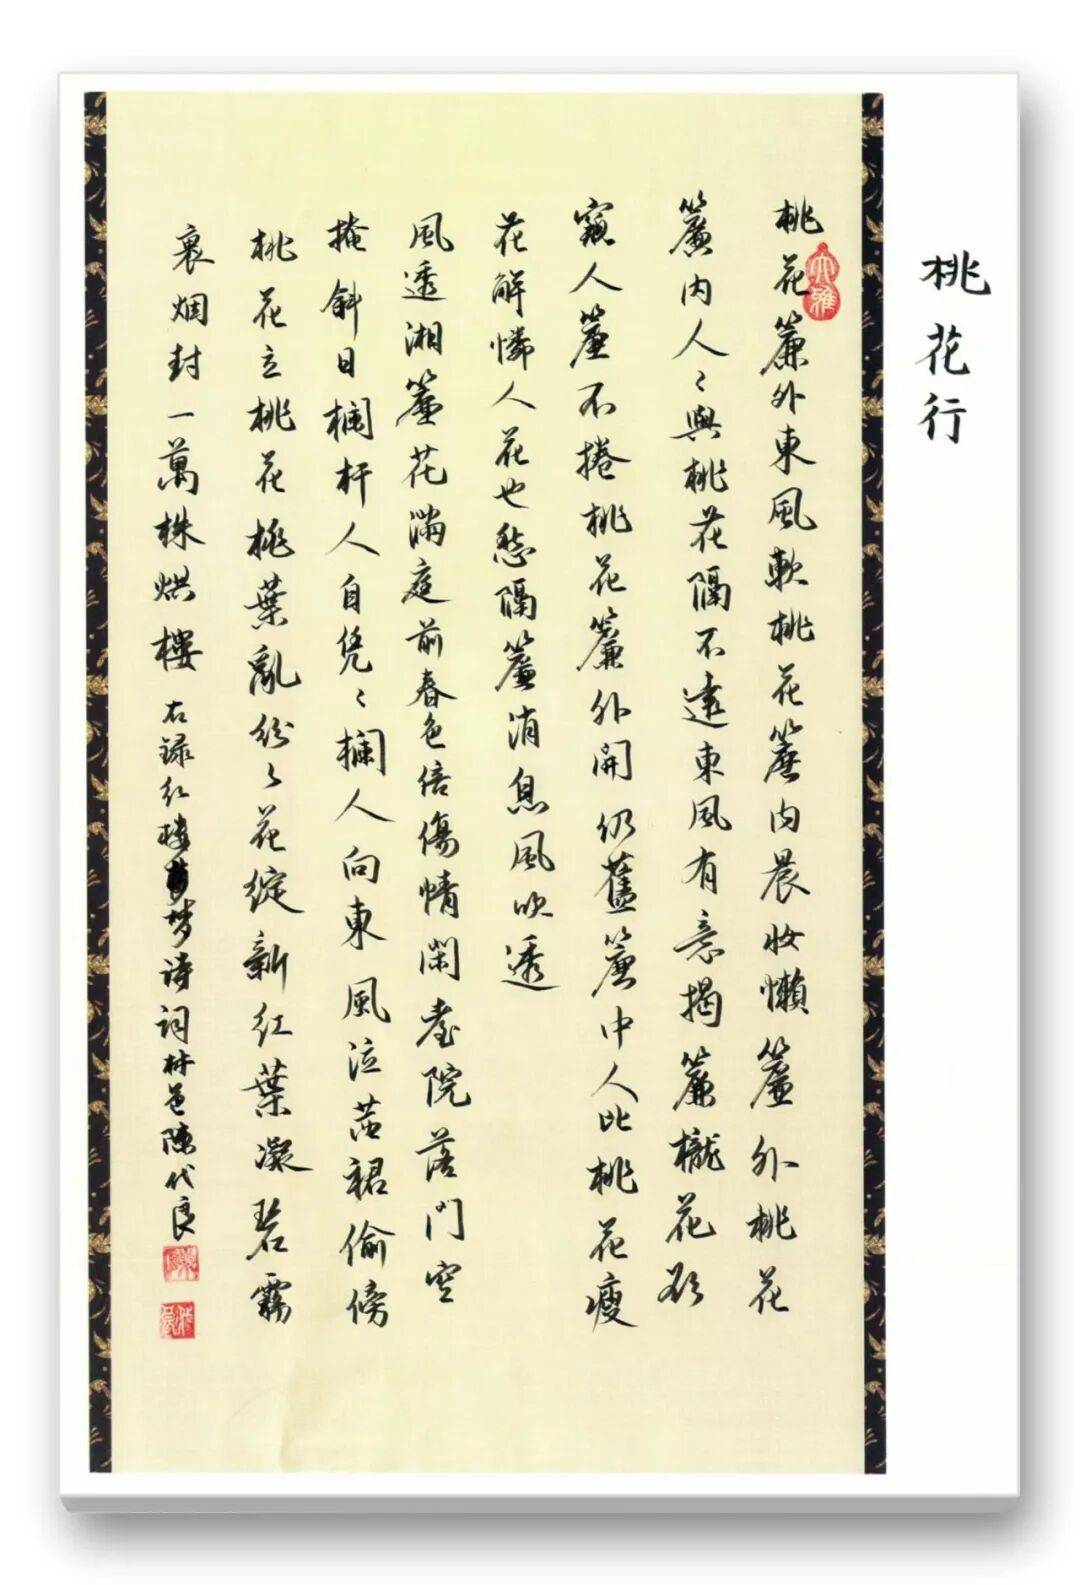 桃花行
大雅
桃花簾外東風軟桃花簾内晨妝懶簾外桃花
簾内人〻與桃花隔不遠東風有意揭簾櫳花欲
窺人簾不捲桃花簾外開仍舊簾中人比桃花瘦
花解憐人花也愁隔簾消息風吹透
風透湘簾花滿庭前春色倍傷情閑苔院落門空
掩斜日欄杆人自凭〻欄人向東風泣茜裙偷傍
桃花立桃花桃葉亂紛〻花綻新紅葉凝碧霧
裹烟封一萬株烘樓 右録红樓梦诗词林邑陳代良